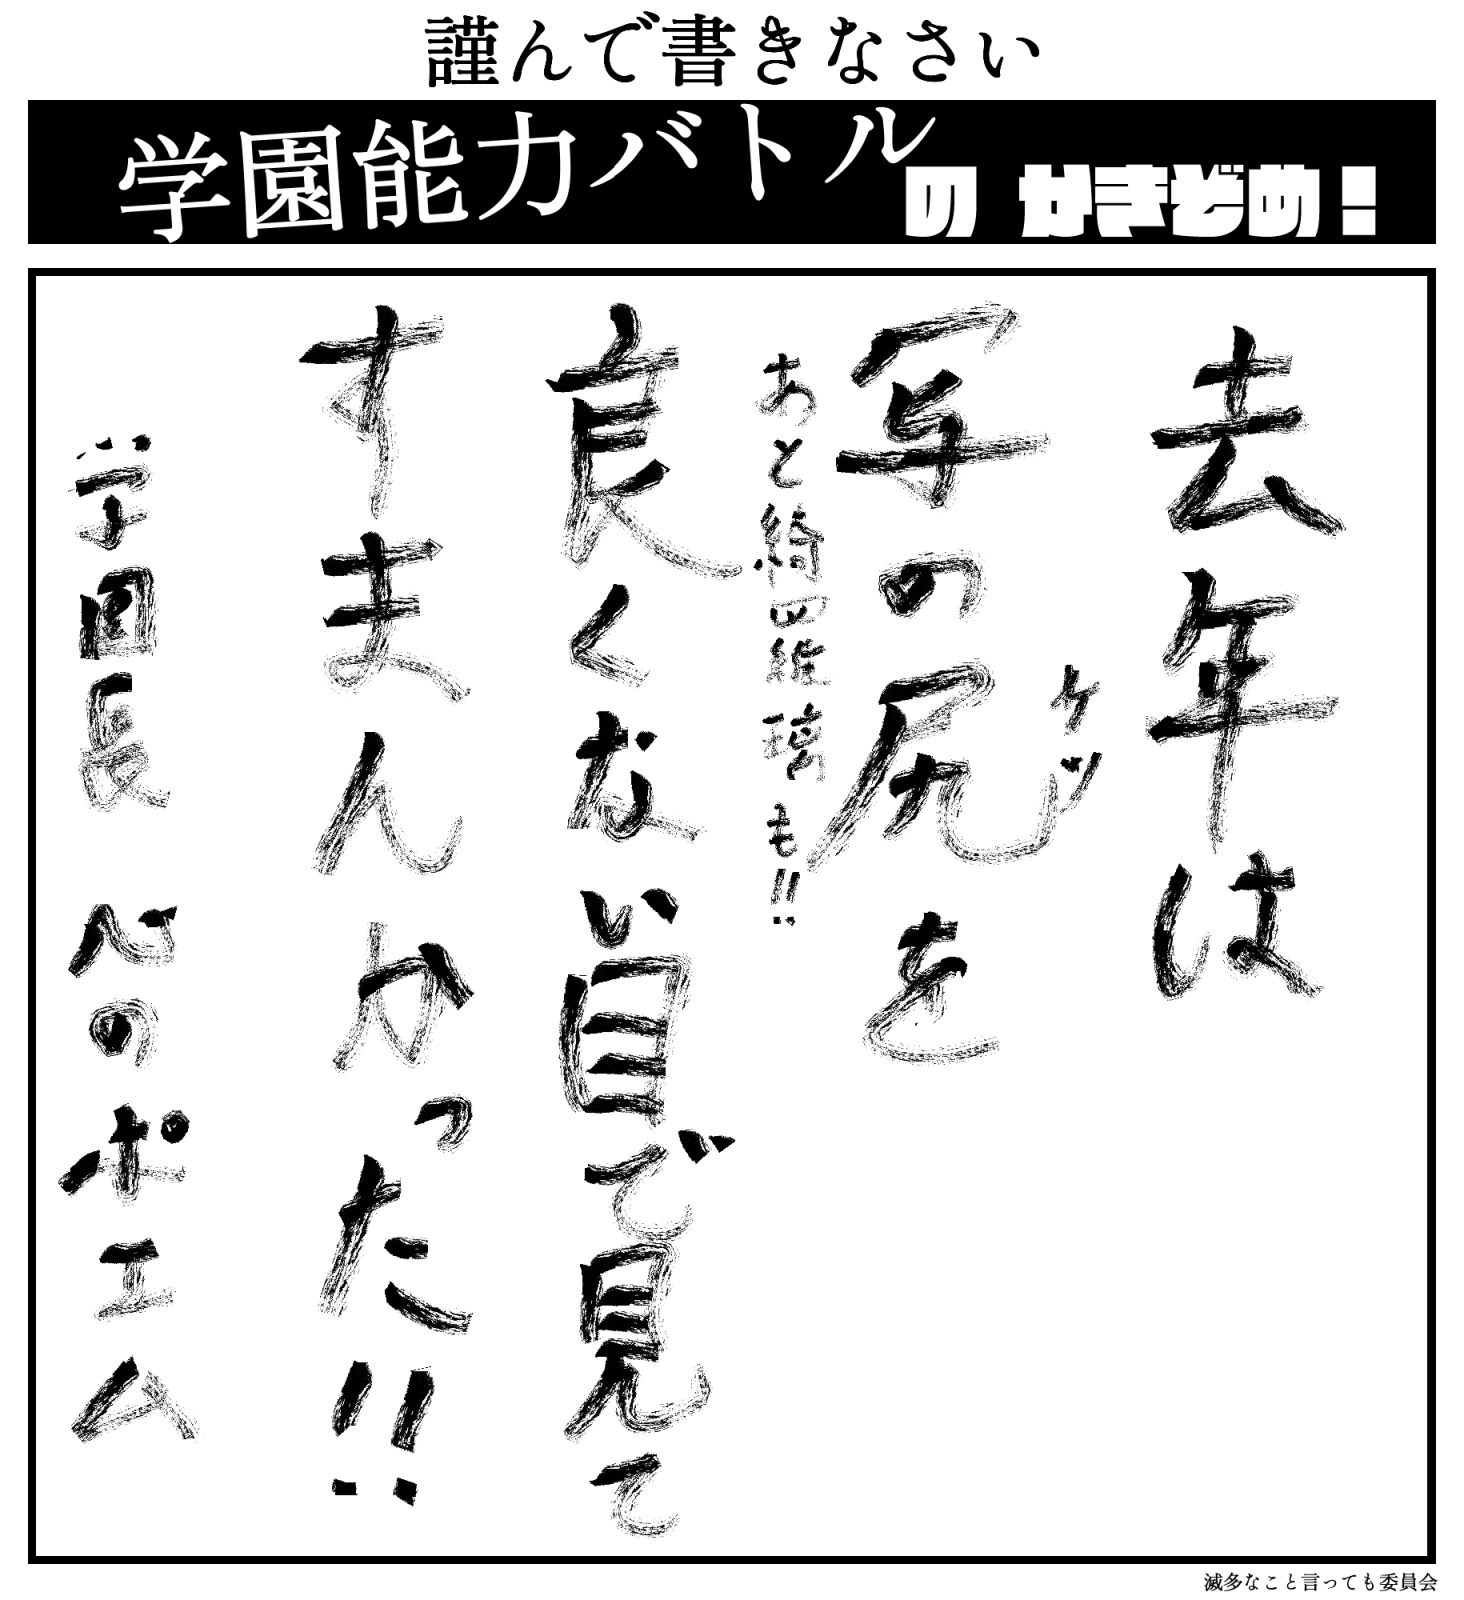 謹んで書きなさい
学園能力バトルの かきぞめ!
去年は
写の尻を
ケツ
あと綺羅維璃も!!
良くない目で見て
すまんかった!!
学園長 心のポエム
滅多なこと言っても委員会